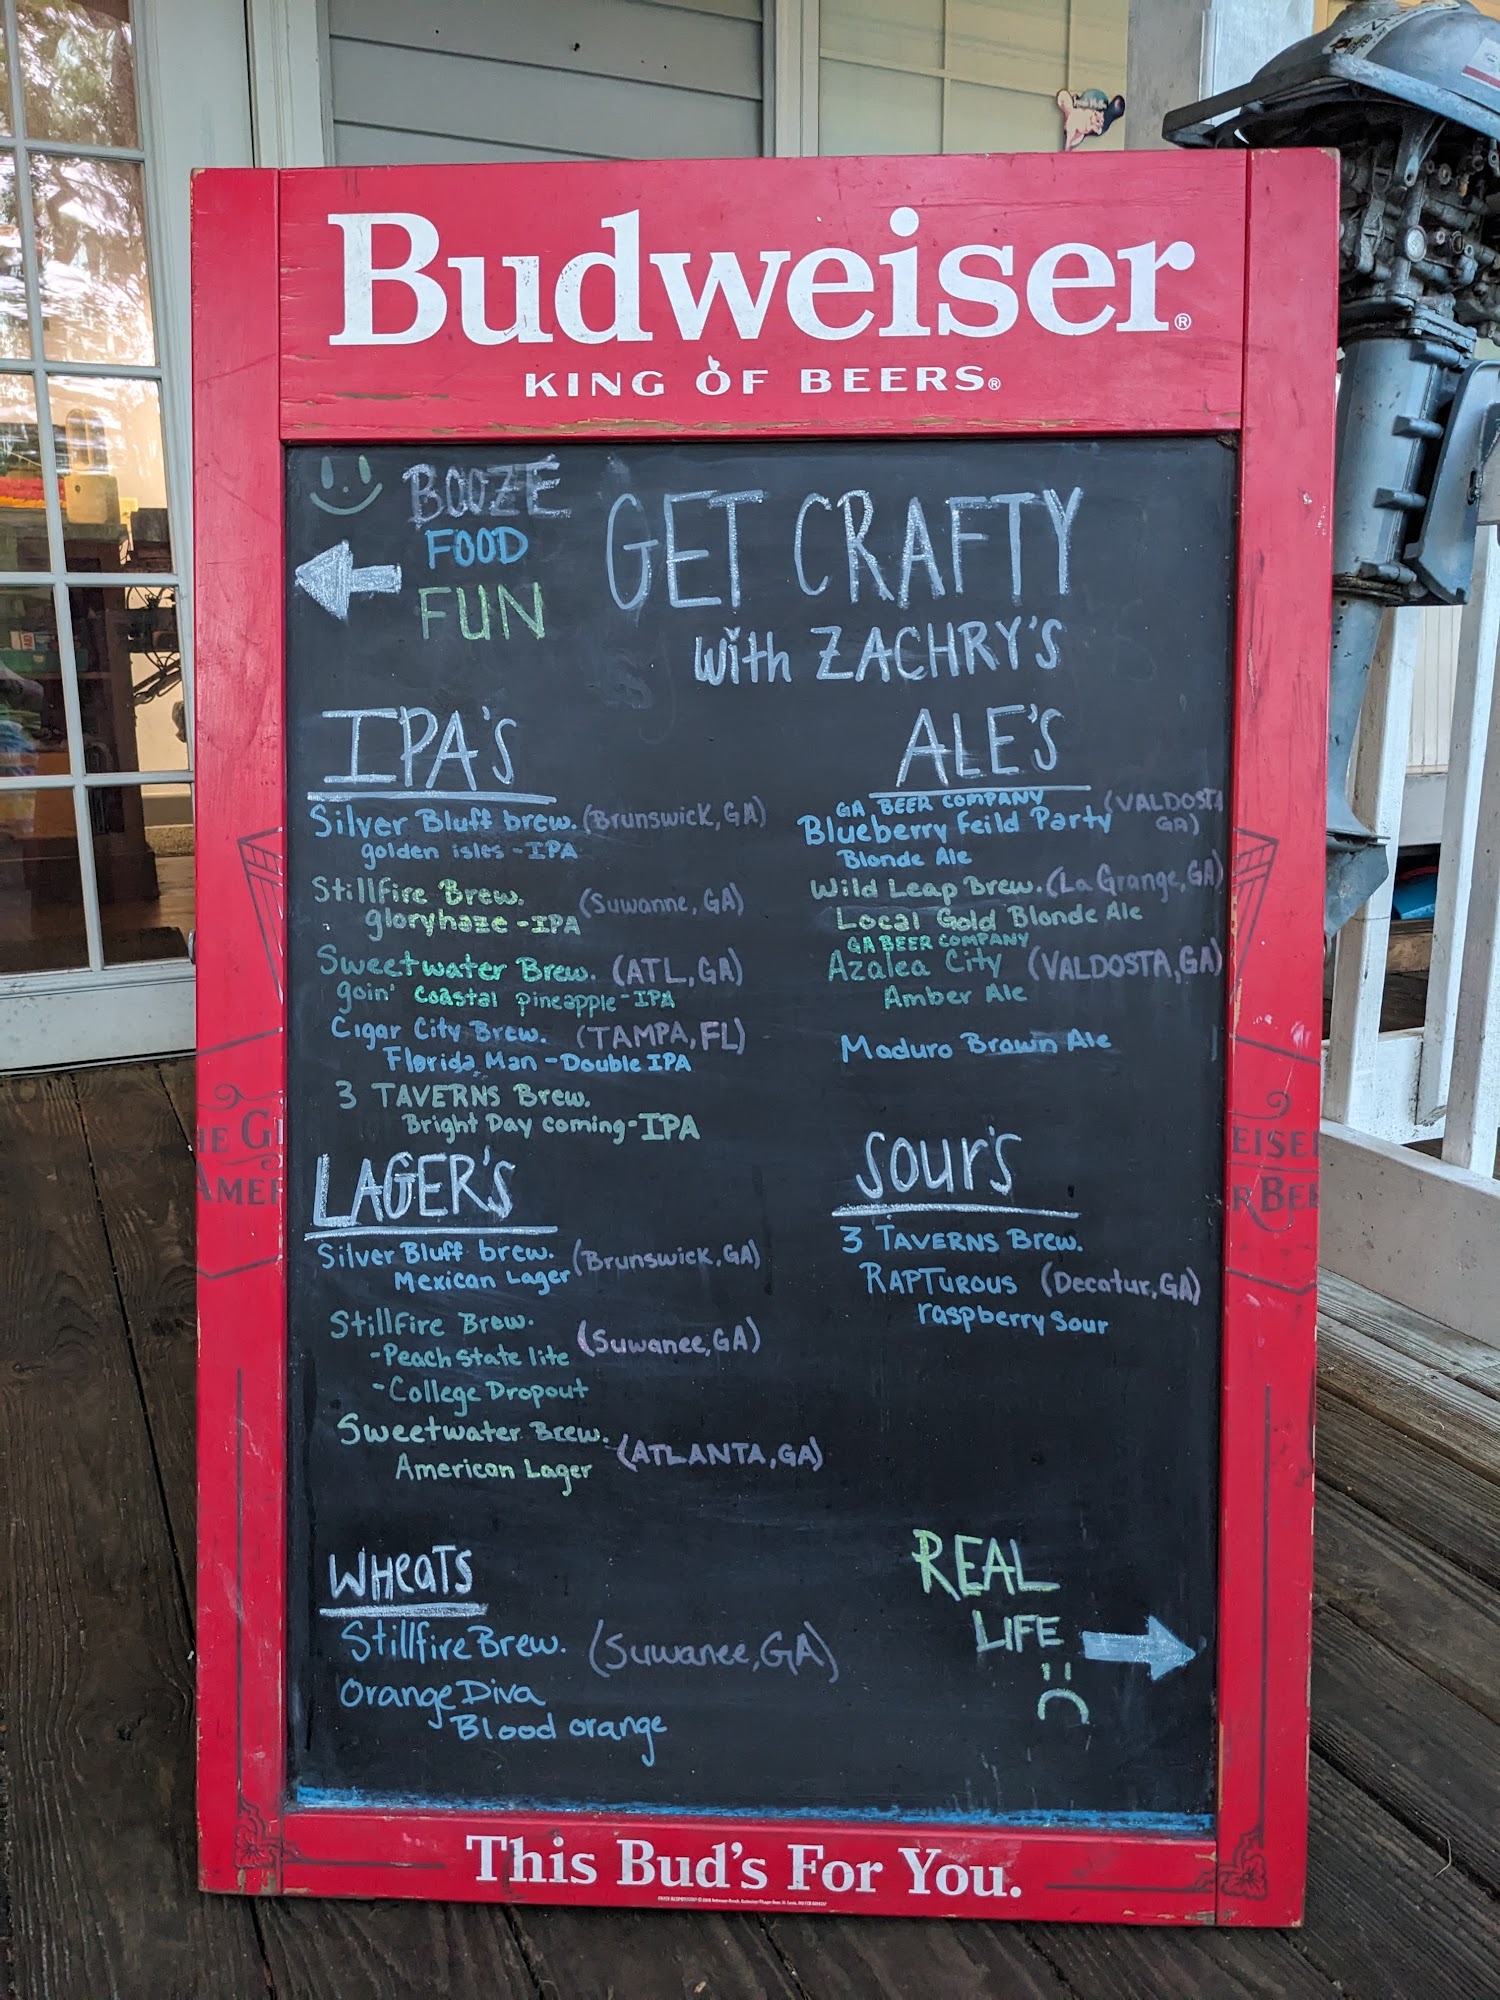 Budweiser®
KING OF BEERS®
BOOZE
FOOD
FUN
GET CRAFTY
with ZACHRY'S
IPA'S
Silver Bluff brew. (Brunswick, GA)
golden isles - IPA
Stillfire Brew. (Suwanne, GA)
gloryhaze - IPA
Sweetwater Brew. (ATL, GA)
goin' coastal pineapple - IPA
Cigar City Brew. (TAMPA, FL)
Florida Man - Double IPA
3 TAVERNS Brew.
Bright Day coming - IPA
LAGER'S
Silver Bluff brew. (Brunswick, GA)
Mexican Lager
Stillfire Brew. (Suwanee, GA)
- Peach state lite
- College Dropout
Sweetwater Brew. (ATLANTA, GA)
American Lager
WHeaTS
Stillfire Brew. (Suwanee, GA)
Orange Diva
Blood orange
ALE'S
GA BEER COMPANY (VALDOSTA
Blueberry Feild Party GA)
Blonde Ale
Wild Leap Brew. (La Grange, GA)
Local Gold Blonde Ale
GA BEER COMPANY
Azalea City (VALDOSTA, GA)
Amber Ale
Maduro Brown Ale
Sour's
3 TAVERNS Brew.
RAPTUROUS (Decatur, GA)
raspberry sour
REAL
LIFE
This Bud's For You.